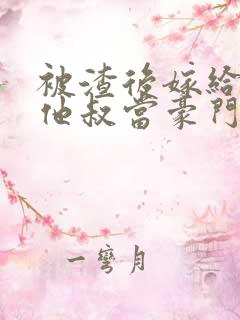 被渣後嫁給
他叔當豪門
一彎月